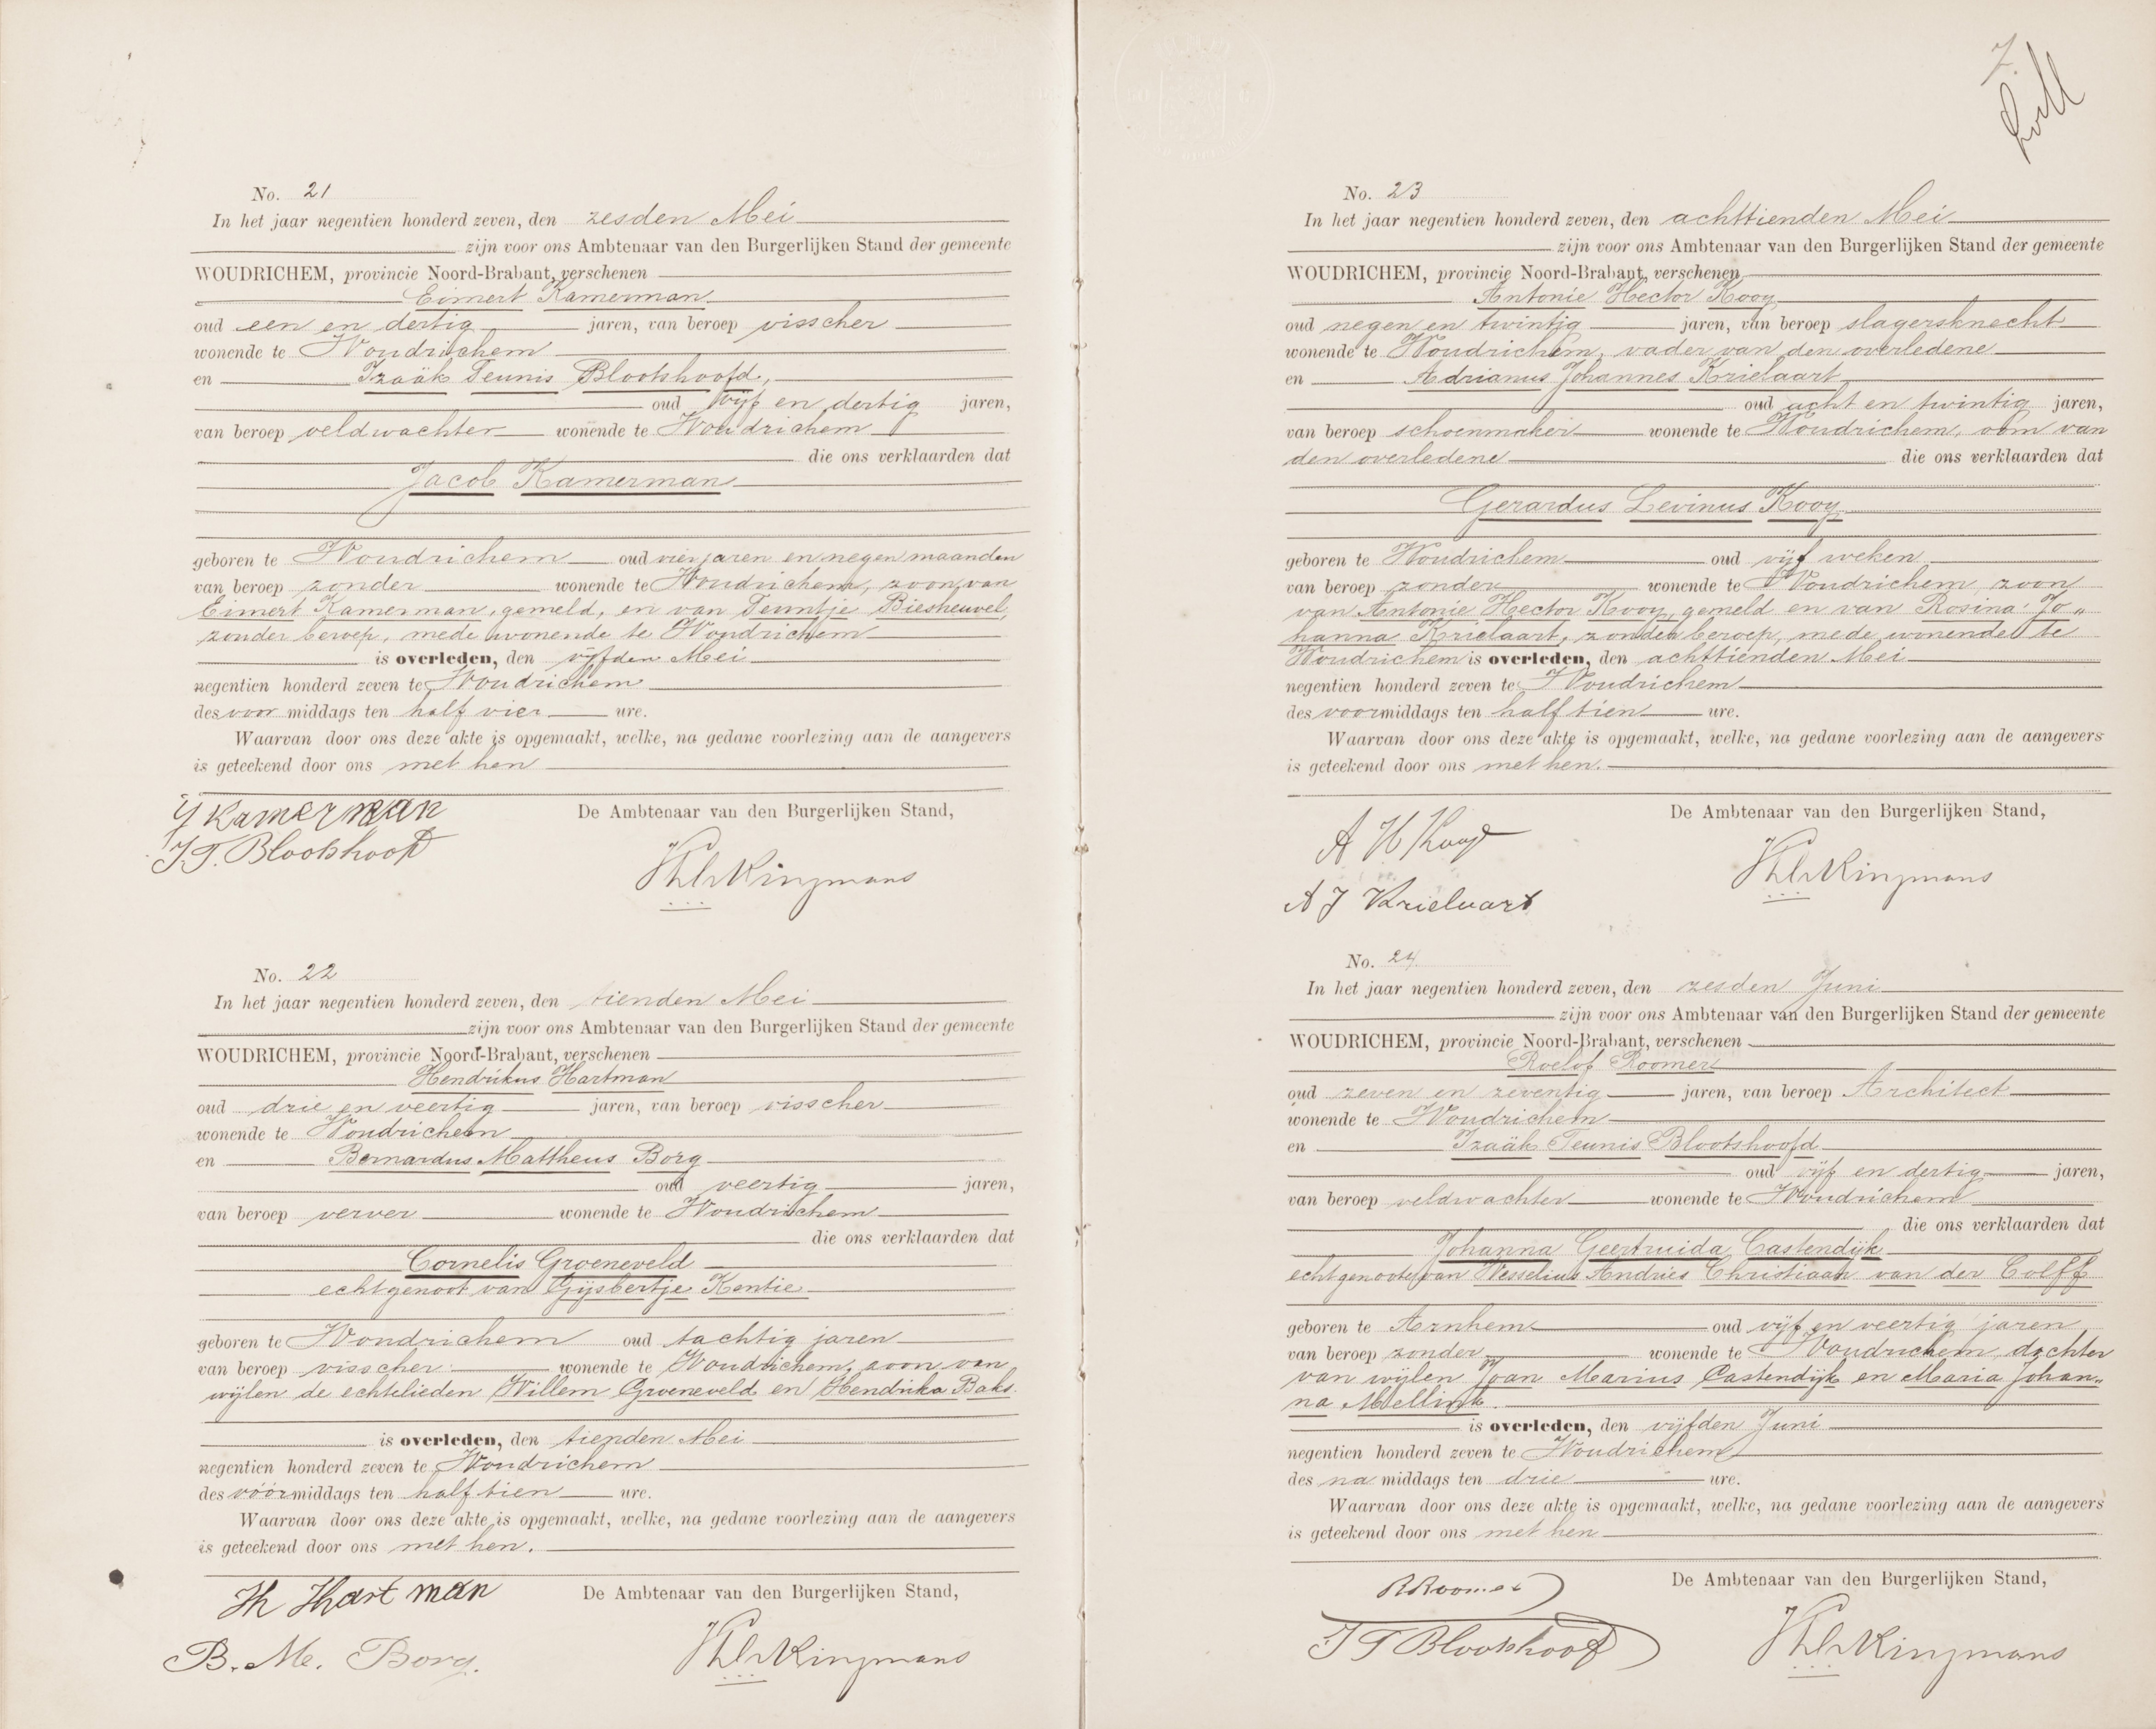 No. 21
In het jaar negentien honderd zeven, den zesden Mei
zijn voor ons Ambtenaar van den Burgerlijken Stand der gemeente
WOUDRICHEM, provincie Noord-Brabant, verschenen
Eimert Kamerman
oud een en dertig jaren, van beroep visscher
wonende te Woudrichem
en Izaäk Teunis Blootshoofd,
oud vijf en dertig jaren,
van beroep veldwachter wonende te Woudrichem
die ons verklaarden dat
Jacob Kamerman
geboren te Woudrichem oud vier jaren en negen maanden
van beroep zonder wonende te Woudrichem, zoon van
Eimert Kamerman, gemeld, en van Teuntje Biesheuvel,
zonder beroep, mede wonende te Woudrichem
is overleden, den vijfden Mei
negentien honderd zeven te Woudrichem
des voor middags ten half vier ure.
Waarvan door ons deze akte is opgemaakt, welke, na gedane voorlezing aan de aangevers
is geteekend door ons met hen
De Ambtenaar van den Burgerlijken Stand,
Kamerman
I.T. Blootshoofd
No. 22
In het jaar negentien honderd zeven, den tienden Mei
zijn voor ons Ambtenaar van den Burgerlijken Stand der gemeente
WOUDRICHEM, provincie Noord-Brabant, verschenen
Hendrikus Hartman
oud drie en veertig jaren, van beroep visscher
wonende te Woudrichem
en Bernardus Mattheus Borg
oud veertig jaren,
van beroep verver wonende te Woudrichem
die ons verklaarden dat
Cornelis Groeneveld
echtgenoot van Gijsbertje Kentie
geboren te Woudrichem oud tachtig jaren
van beroep visscher wonende te Woudrichem, zoon van
wijlen de echtelieden Willem Groeneveld en Hendrika Baks.
is overleden, den tienden Mei
negentien honderd zeven te Woudrichem
des vóórmiddags ten half tien ure.
Waarvan door ons deze akte is opgemaakt, welke, na gedane voorlezing aan de aangevers
is geteekend door ons met hen.
De Ambtenaar van den Burgerlijken Stand,
H Hartman
B. M. Borg.
7.
No. 23
In het jaar negentien honderd zeven, den achttienden Mei
zijn voor ons Ambtenaar van den Burgerlijken Stand der gemeente
WOUDRICHEM, provincie Noord-Brabant, verschenen
Antonie Hector Kooy,
oud negen en twintig jaren, van beroep slagersknecht
wonende te Woudrichem, vader van den overledene
en Adrianus Johannes Krielaart
oud acht en twintig jaren,
van beroep schoenmaker wonende te Woudrichem, oom van
den overledene die ons verklaarden dat
Gerardus Levinus Kooy
geboren te Woudrichem oud vijf weken
van beroep zonder wonende te Woudrichem, zoon
van Antonie Hector Kooy, gemeld en van Rosina Jo„
hanna Krielaart, zonder beroep, mede wonende te
Woudrichem is overleden, den achttienden Mei
negentien honderd zeven te Woudrichem
des voormiddags ten half tien ure.
Waarvan door ons deze akte is opgemaakt, welke, na gedane voorlezing aan de aangevers
is geteekend door ons met hen.
De Ambtenaar van den Burgerlijken Stand,
A H Kooy
A J Krielaart
No. 24
In het jaar negentien honderd zeven, den zesden Juni
zijn voor ons Ambtenaar van den Burgerlijken Stand der gemeente
WOUDRICHEM, provincie Noord-Brabant, verschenen
Roelof Roomer
oud zeven en zeventig jaren, van beroep Architect
wonende te Woudrichem
en Izaäk Teunis Blootshoofd
oud vijf en dertig jaren,
van beroep veldwachter wonende te Woudrichem
die ons verklaarden dat
Johanna Geertruida Castendijk
echtgenoote van Wesselius Andries Christiaan van der Colff
geboren te Arnhem oud vijf en veertig jaren
van beroep zonder wonende te Woudrichem, dochter
van wijlen Joan Marius Castendijk en Maria Johan„
na Mellink.
is overleden, den vijfden Juni
negentien honderd zeven te Woudrichem
des na middags ten drie ure.
Waarvan door ons deze akte is opgemaakt, welke, na gedane voorlezing aan de aangevers
is geteekend door ons met hen
De Ambtenaar van den Burgerlijken Stand,
R Roomer
I T Blootshoofd